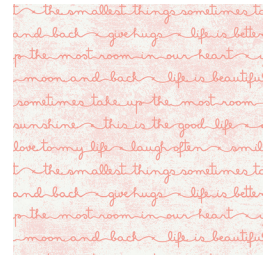 the smallest things sometimes t
and back give hugs life is better
up the most room in our heart
moon and back life is beautifu
sometimes take up the most room
sunshine this is the good life
love to my life laugh often smil
the smallest things sometimes t
and back give hugs life is better
up the most room in our heart
moon and back life is beautifu